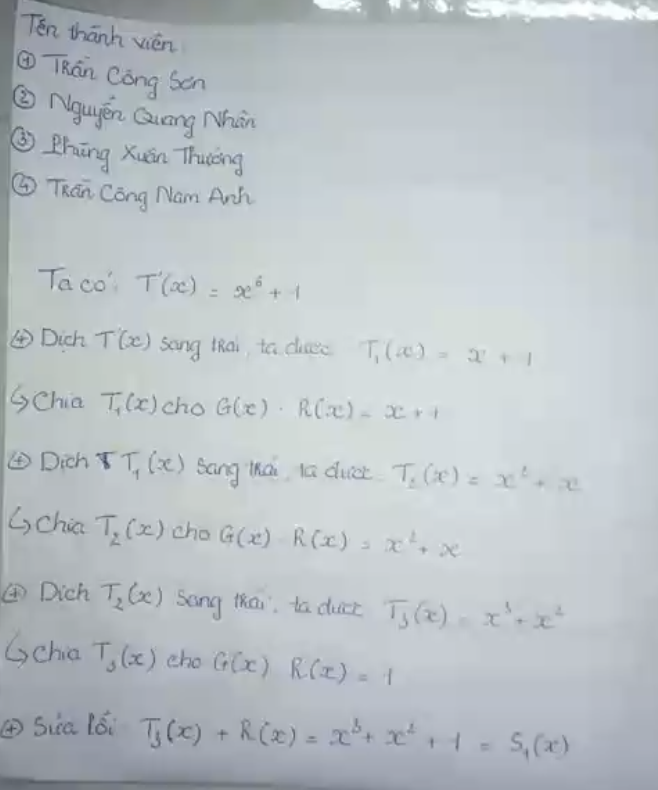 Tên thành viên:
① Trần Công Sơn
② Nguyễn Quang Nhân
③ Phùng Xuân Thương
④ Trần Công Nam Anh
Ta có: T(x) = x⁶ + 1
⊕ Dịch T(x) sang trái, ta được T₁(x) = x + 1
↳ Chia T₁(x) cho G(x). R(x) = x + 1
⊕ Dịch T₁(x) sang trái, ta được T₂(x) = x² + x
↳ Chia T₂(x) cho G(x) R(x) = x² + x
⊕ Dịch T₂(x) sang trái, ta được T₃(x) = x³ + x²
↳ Chia T₃(x) cho G(x) R(x) = 1
⊕ Sửa lỗi T₃(x) + R(x) = x³ + x² + 1 = S₁(x)